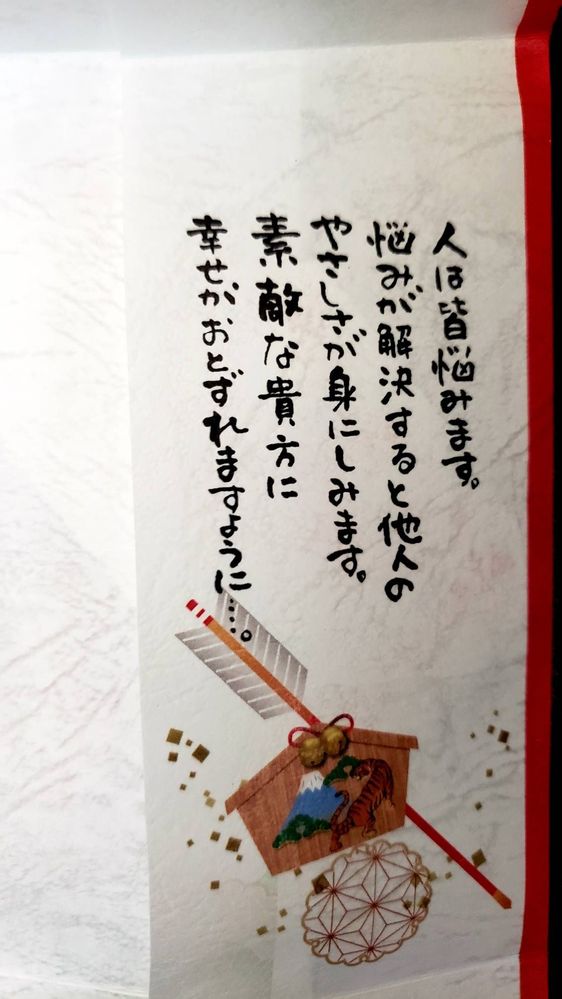 人は皆悩みます。
悩みが解決すると他人の
やさしさが身にしみます。
素敵な貴方に
幸せがおとずれますように……。